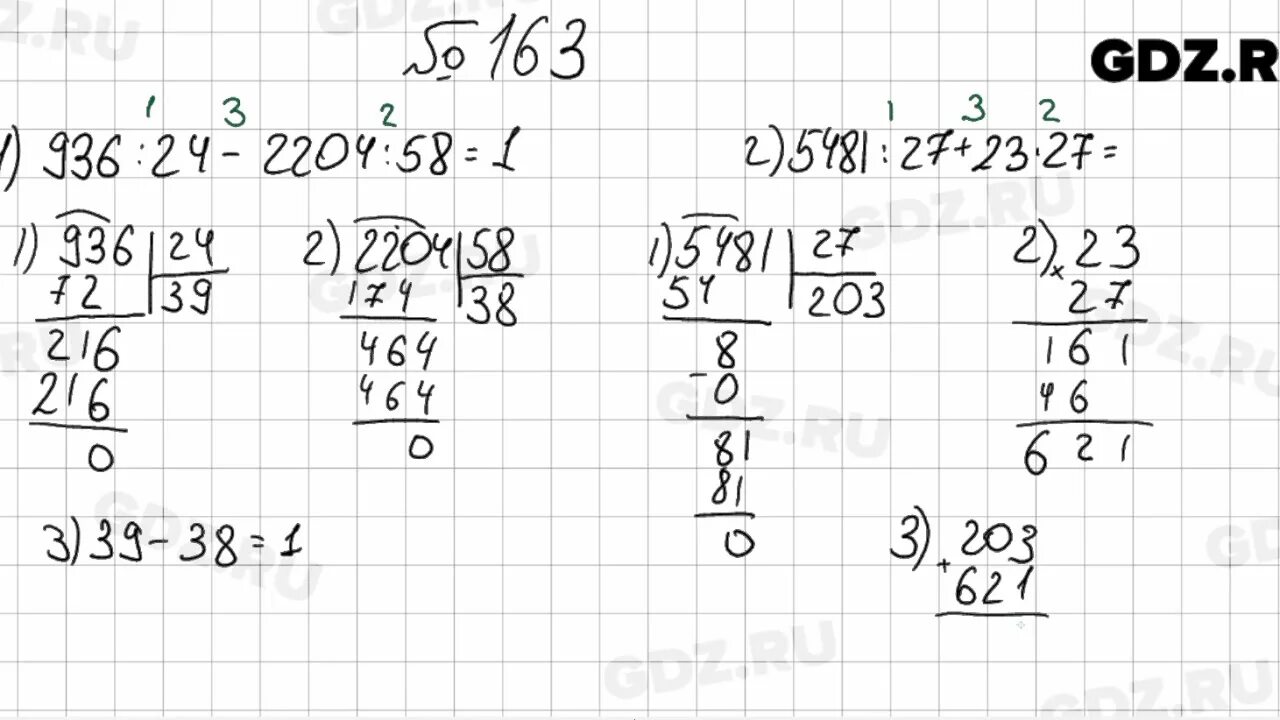 № 163
GDZ.R
1 3 2
1) 936 : 24 - 2204 : 58 = 1
1) 936 | 24
72 39
216
216
0
2) 2204 | 58
174 38
464
464
0
3) 39 - 38 = 1
1 3 2
2) 5481 : 27 + 23 · 27 =
1) 5481 | 27
54 203
8
- 0
81
81
0
2) × 23
27
161
46
621
3) + 203
621
GDZ.RU
GDZ.RU
GDZ.RU
GDZ.RU
GDZ.RU
GDZ.RU
GDZ.RU
GDZ.RU
GDZ.RU